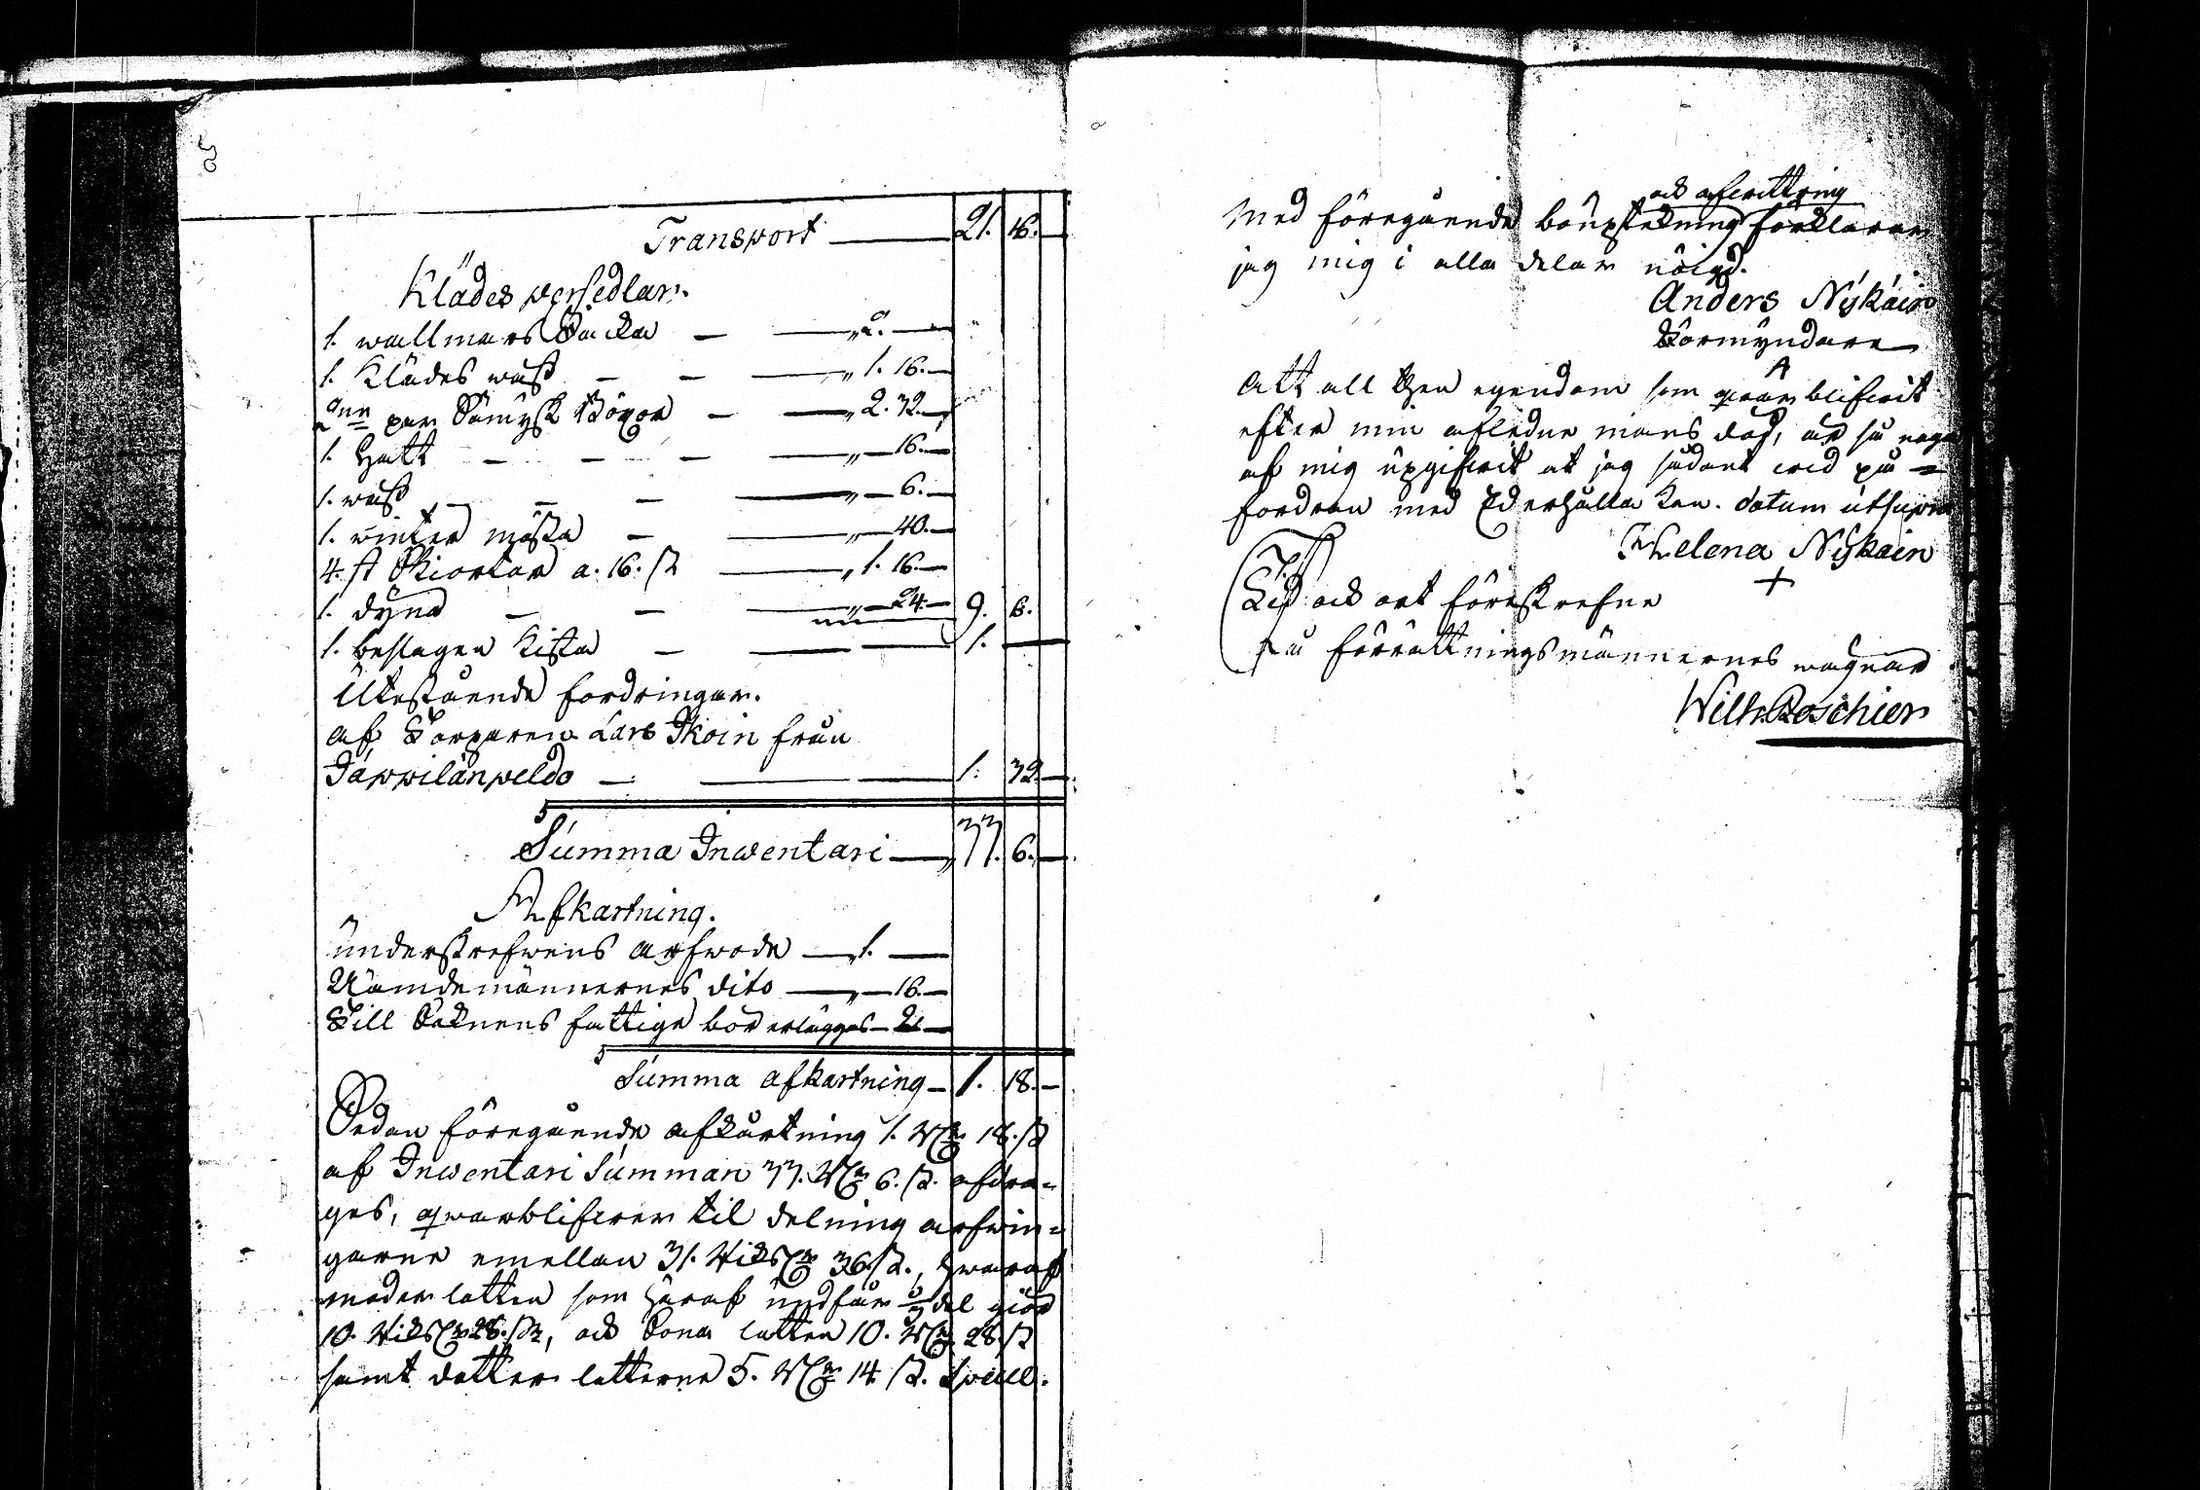 Transport — 21. 16. —
Klädes persedlar.
1. wallmars Jacka — — „ 2. —
1. Klädes wäst — — — „ 1. 16. —
par Sämsk Böxor — — „ 2. 32. —
1. Hatt — — — — „ — 16. —
1. wäst — — — „ — 6. —
1. winter mössa — — „ — 40. —
4. st Skiortor a. 16. s — „ 1. 16. —
1. dyna — — — „ — 24. — 9. 6.
1. beslagen Kista — — — 1. —
Utestående fordringar.
af Torparen Lars Ikoin från
Jäppilänpeldo — — — 1. 32. —
Summa Inwentari — „ 33. 6. —
Afkartning.
underskrefwens arfwode — „ 1. —
Nämdemännernes dito — „ — 16. —
Till Soknens fattiga bör erlägges — 2 —
Summa afkartning — 1. 18. —
Sedan föregående afkårtning 1. Rd 18. s
af Inwentari Summan 33. Rd 6. s. afdra=
ges, qwarblifwer til delning arfwin=
garne emellan 31. RiksD 36 s., hwaraf
moder lotten som häraf undfår 1/3 del giör
10. RiksD 28. s, och Sona lotten 10. Rd 28 s
samt dotter lotterne 5. Rd 14 s.
Med föregående bouptekning och afwittring förklarar
jag mig i alla delar nöigd.
Anders Nykäin
Förmyndare
Att all then egendom som qwarblifwit
efter min afledne mans död, är så noga
af mig upgifwit at jag sådant wid på=
fordran med Ed erhålla kan. datum utsupra
Helena Nykäin
+
Tid och ort föreskrefne
På förrättningsmännernes wägnar
Wilh Poschier